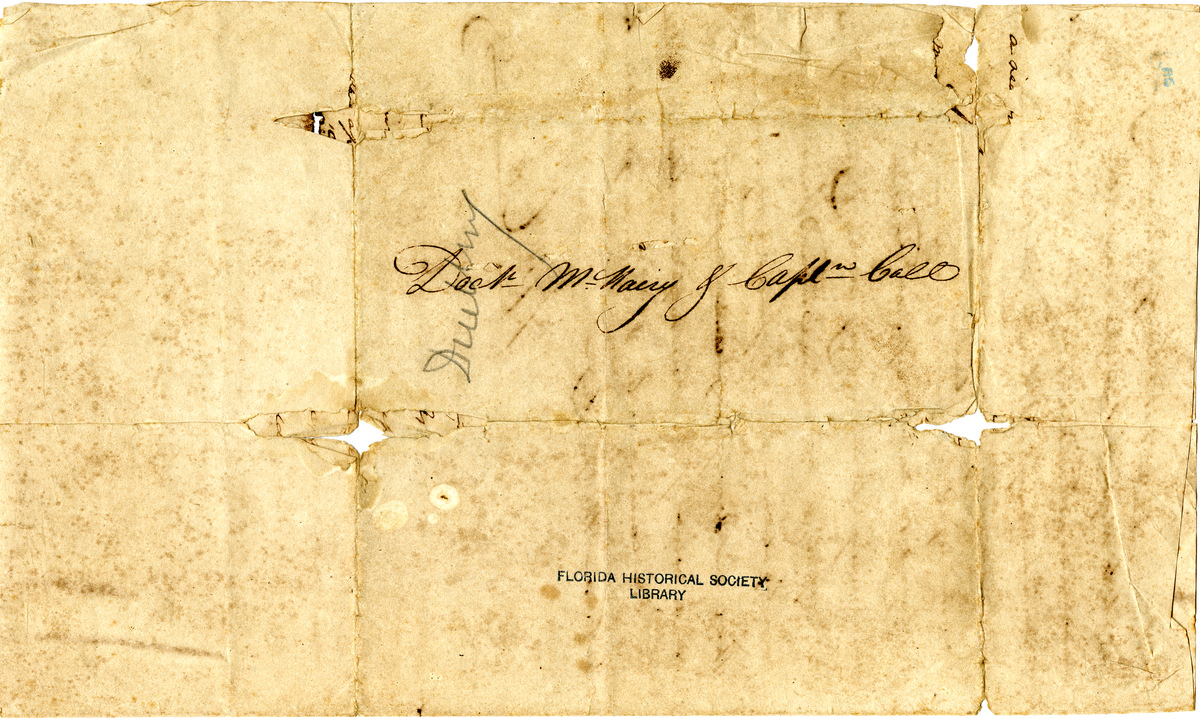 Doctr McNairy & Captn Call
FLORIDA HISTORICAL SOCIETY
LIBRARY